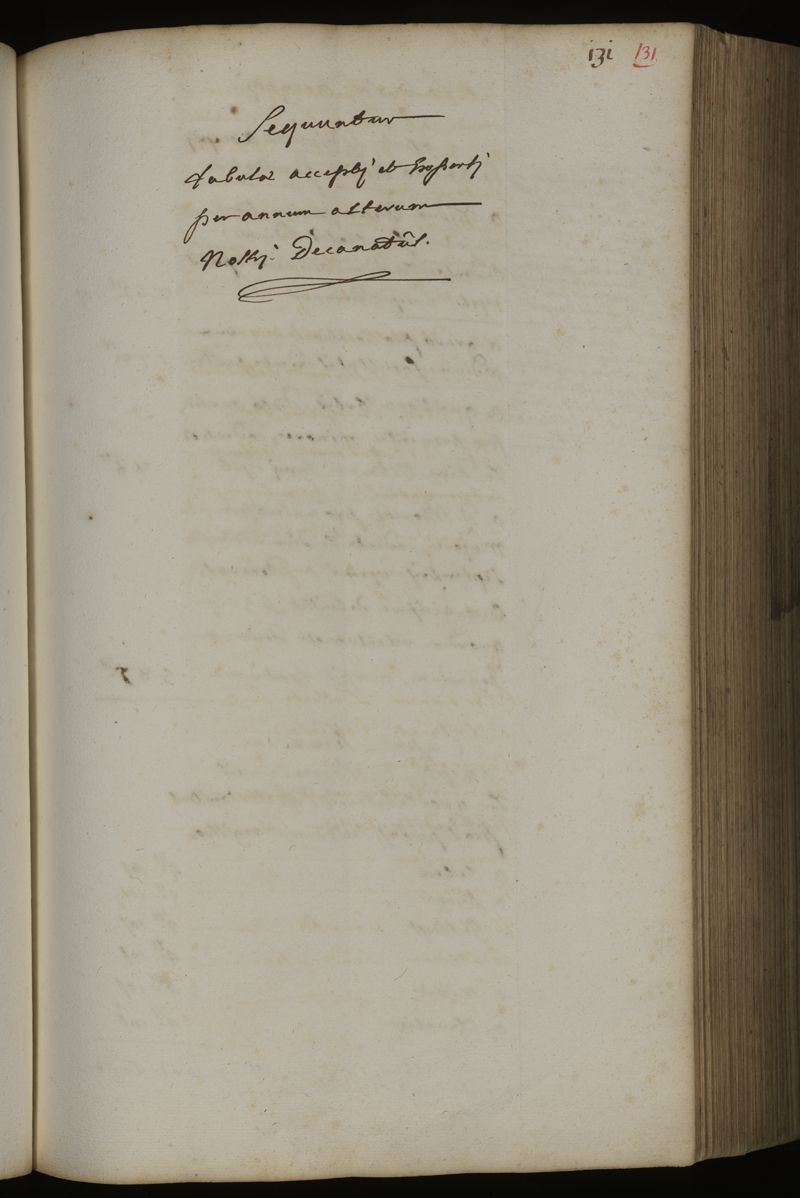 131 131
Sequuntur
tabulæ acceptj et Expensj
per annum alterum
Nostrj Decanatûs.